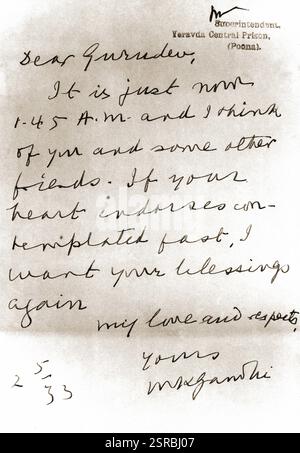 Superintendent,
Yeravda Central Prison,
(Poona).
Dear Gurudev,
It is just now
1.45 A.M. and I think
of you and some other
friends. If your
heart endorses con-
templated fast, I
want your blessings
again
my love and respects,
yours
MKGandhi
2 5/33
alamy
Image ID: 2SRBJ07
www.alamy.com